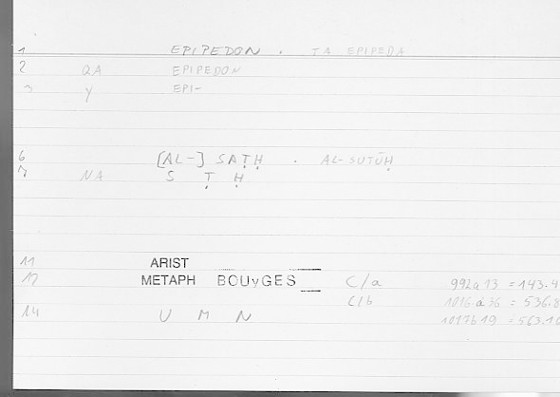 1 EPIPEDON . TA EPIPEDA
2 QA EPIPEDON
3 Y EPI-
6 [AL-] SAṬḤ . AL-SUTŪḤ
7 NA S Ṭ Ḥ
11 ARIST
12 METAPH BOUyGES C/a 992a13 = 143.4
C/b 1016a36 = 536.8
14 U M N 1017b19 = 563.16